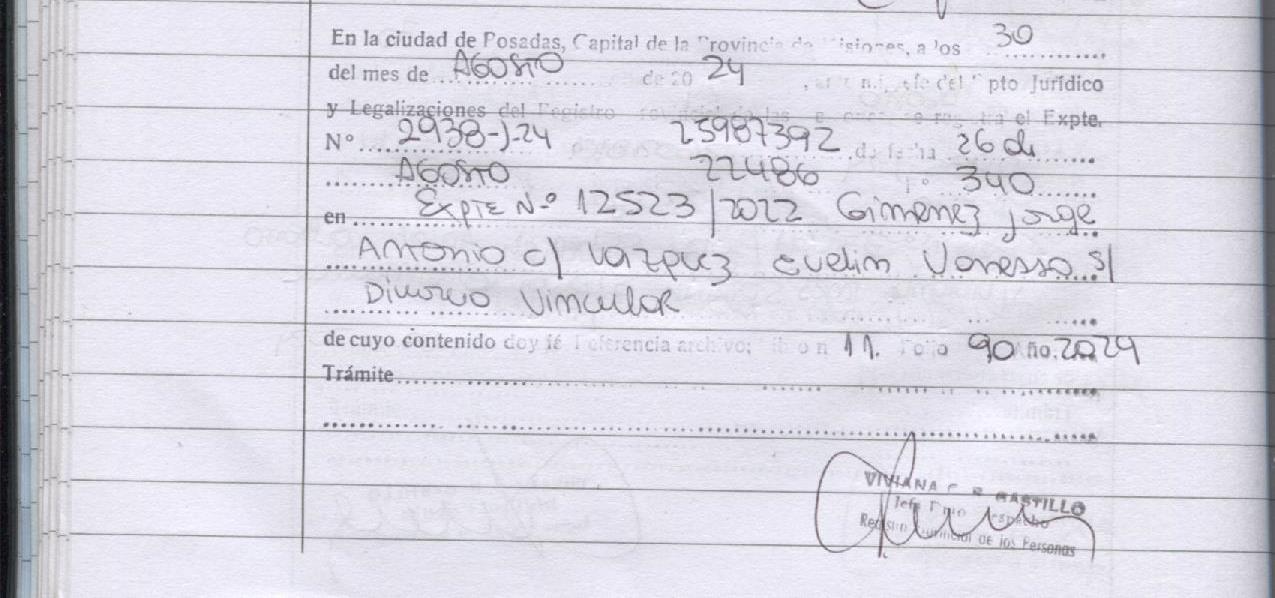 En la ciudad de Posadas, Capital de la Provincia de Misiones, a los 30
del mes de AGOSTO de 20 24, del Dpto Jurídico
y Legalizaciones del Registro el Expte.
Nº 2938-J-24 25987392 de fecha 26 de
AGOSTO 22486 Fº 340
en EXPTE Nº 12523/2022 Gimenez Jorge
Antonio c/ Vazquez Evelin Vanessa s/
Divorcio Vincular
de cuyo contenido doy fé Referencia archivo; 11. Folio 90 Año. 2024
Trámite
VIVIANA CASTILLO
Jefe Dpto Despacho
Registro Provincial de los Personas